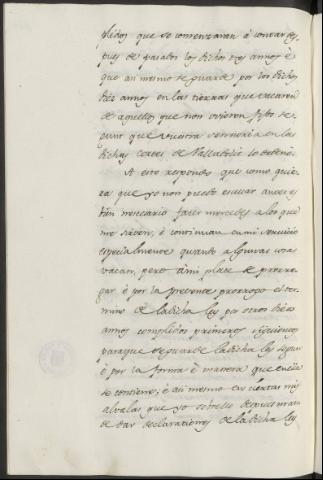 plidos que se comenzaran á contar des
pues de pasados los dichos dies annos é
que asi mesmo se guarde por los dichos
dies annos en las tierras que vacaren
de aquellos que non ovieren fijos se
gunt que vuestra sennoria en las
dichas cortes de Valladolid lo ordenó.
A esto respondo que como quie
ra que yo non puedo escusar antes es
bien nescesario facer mercedes a los que
me sirven, é continuan en mi servicio
especialmente quando algunas cosas
vacan, pero á mi place de prorro
gar é por la presente prorrogo el ter
mino de la dicha ley por otros dies
annos complidos primeros siguientes
para que se guarde la dicha ley segun
é por la forma é manera que en ella
se contiene; é asi mesmo las cartas mis
alvalas que yo sobrello despues man
de dar declaratorias de la dicha ley